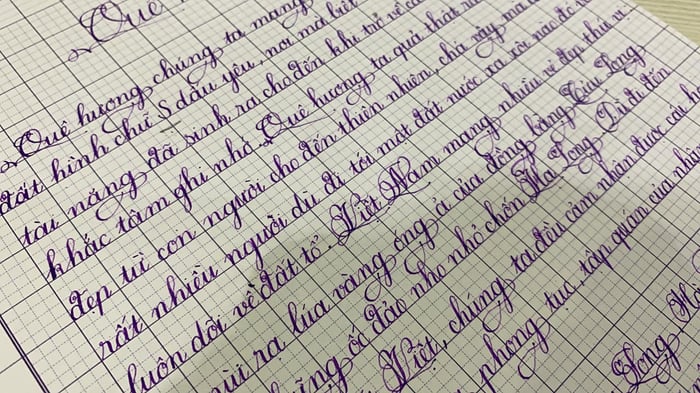 Quê
Quê hương chúng ta mang
đất hình chữ S dấu yêu, nơi mà
tài năng đã sinh ra cho đến khi trở về
khắc tâm ghi nhớ. Quê hương ta quả thật
đẹp từ con người cho đến thiên nhiên, chả vậy mà
rất nhiều người dù đi tới một đất nước xa xôi nào đó
luôn dõi về đất tổ. Việt Nam mang nhiều vẻ đẹp thú
ra lúa vàng óng ả của đồng bằng Cửu Long
những ốc đảo nho nhỏ chốn Hạ Long. Dù đi đến
Việt, chúng ta đều cảm nhận được cái
phong tục, tập quán của
Long,